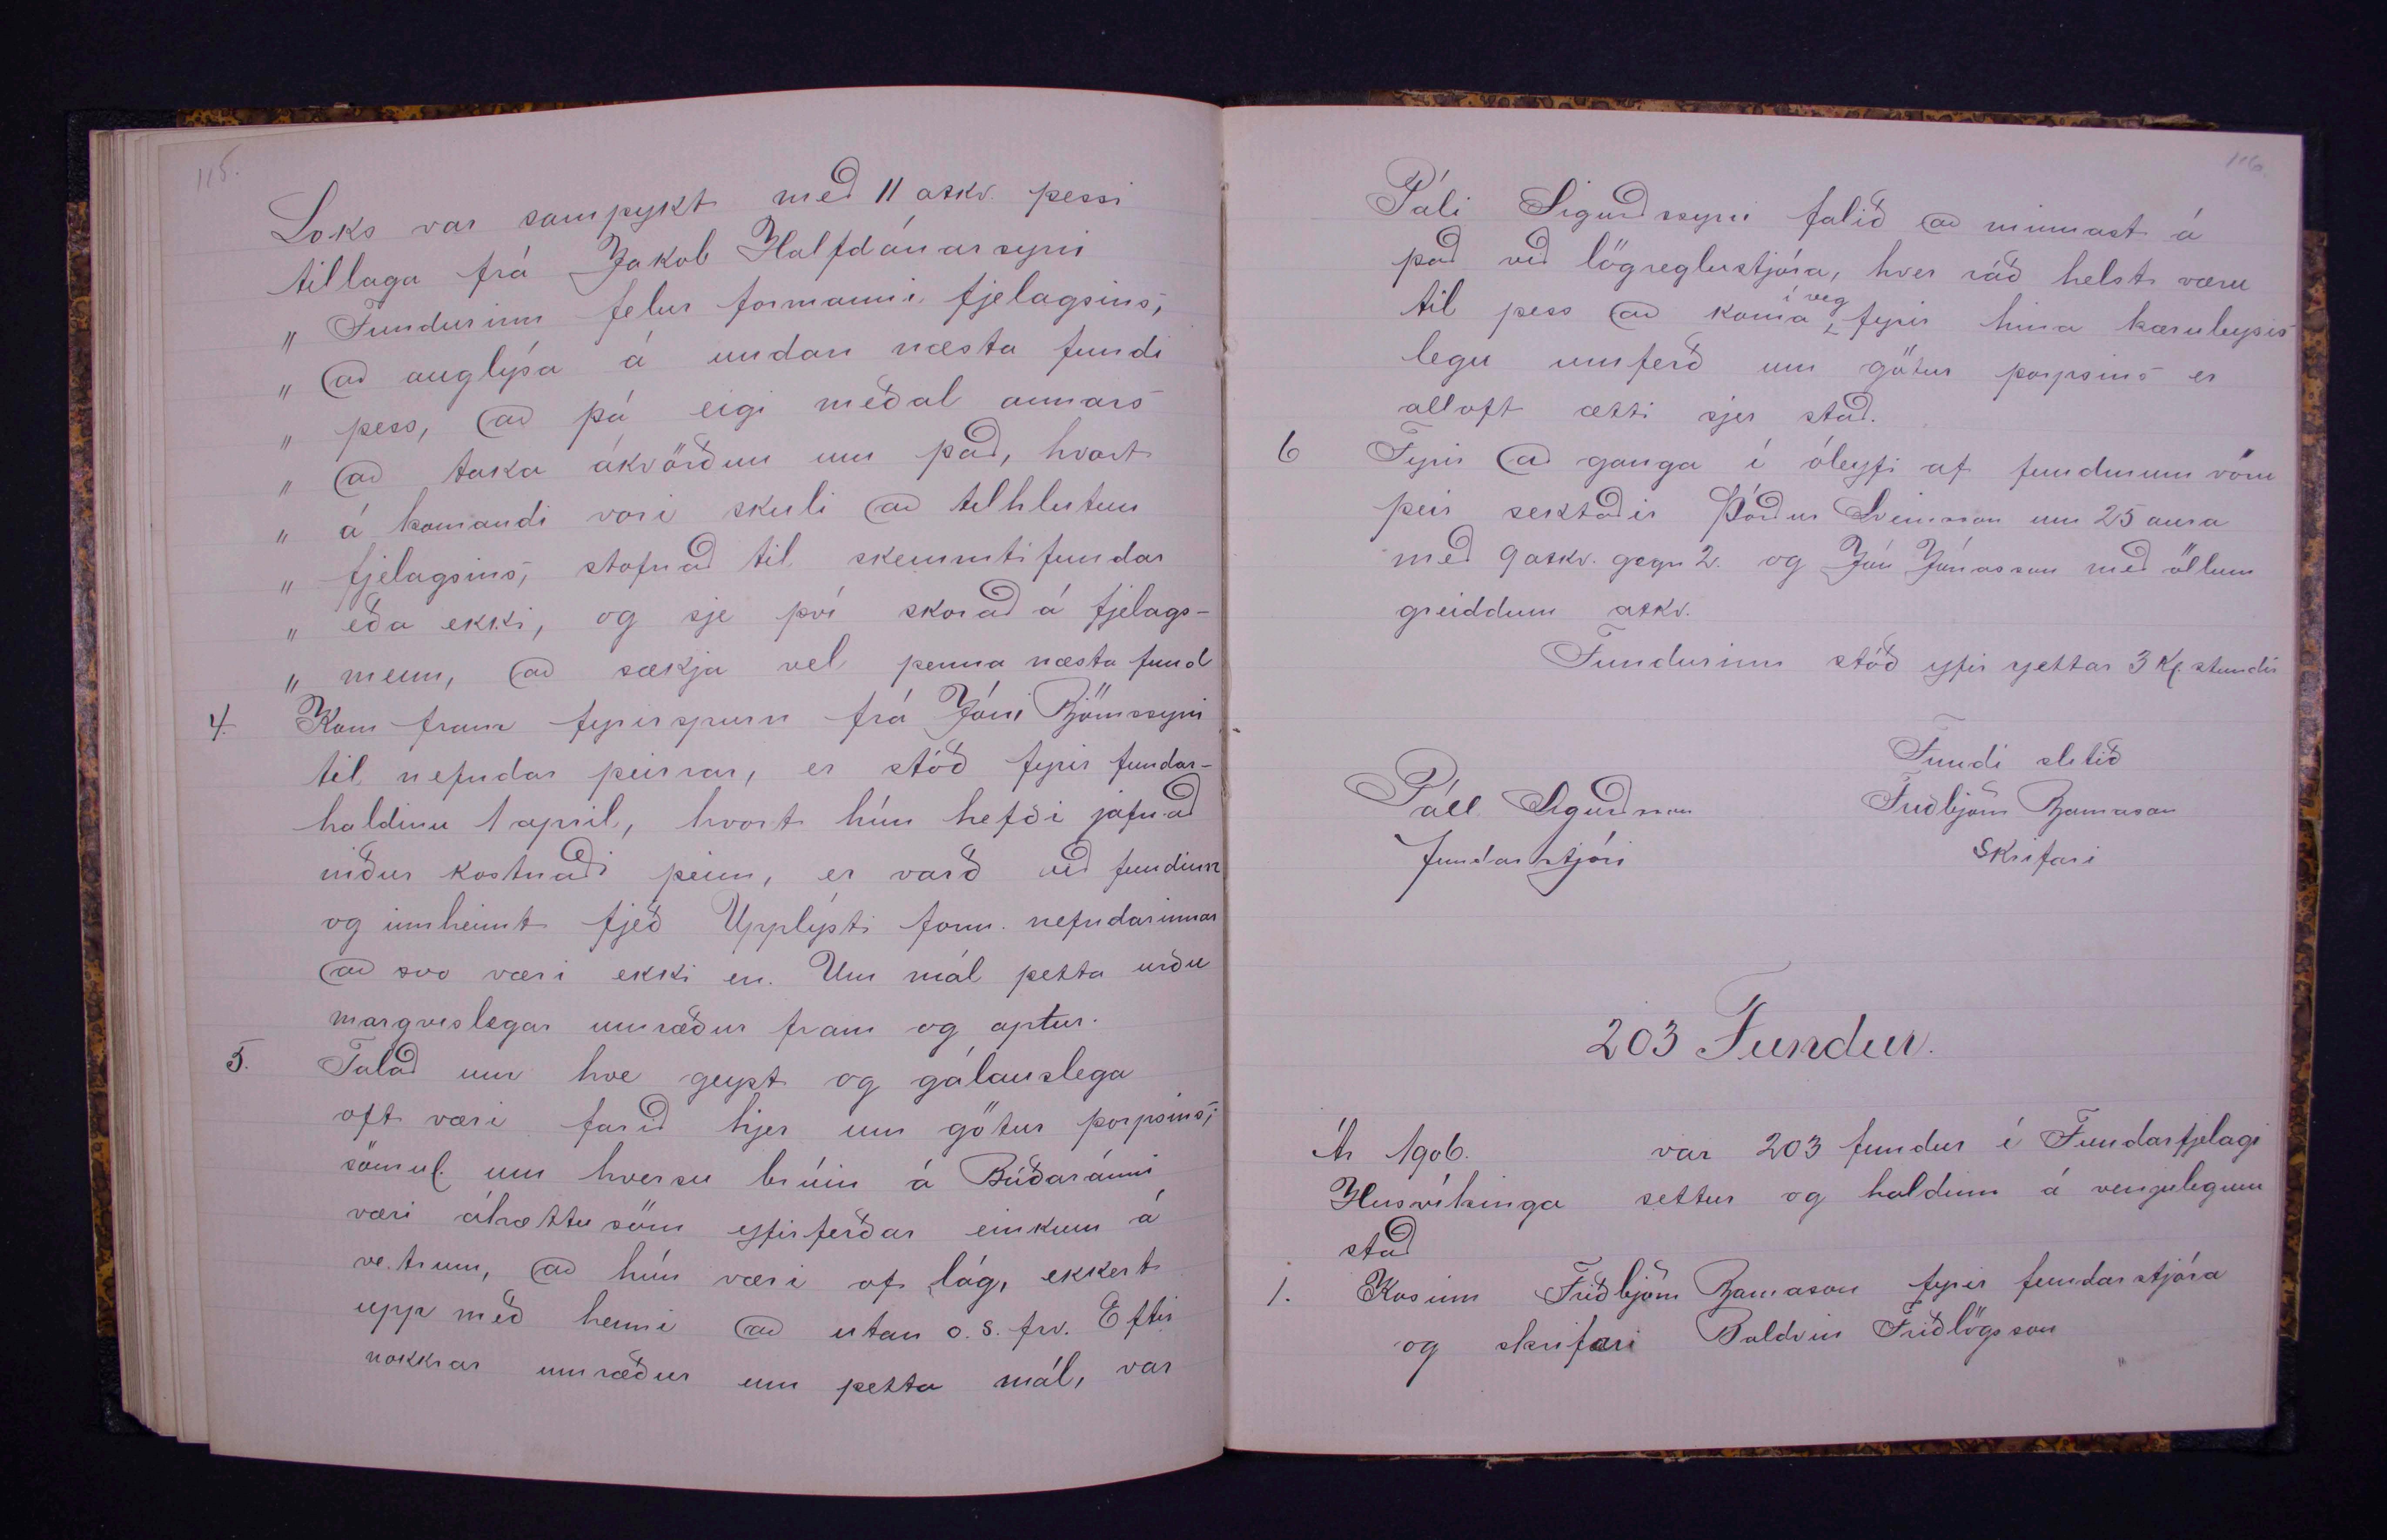 115.
Loks var samþykt með 11 atkv. þessi
tillaga frá Jakob Halfdánarsyni
„ Fundurinn felur formanni fjelagsins,
„ að auglýsa á undan næsta fundi
„ þess, að þá eigi meðal annars
„ að taka ákvörðun um það, hvort
„ á komandi vori skuli að tilhlutun
„ fjelagsins, stofnað til skemmtifundar
„ eða ekki, og sje því skorað á fjelags-
„ menn, að sækja vel þenna næsta fund
4. Kom fram fyrirspurn frá Jóni Björnssyni
til nefndar þeirrar, er stóð fyrir fundar-
haldinu 1 apríl, hvort hún hefði jafnað
niður kostnaði þeim, er varð við fundinn
og innheimt fjeð Upplýsti form. nefndarinnar
að svo væri ekki en. Um mál þetta urðu
margvíslegar umræður fram og aptur.
5. Talað um hve geyst og gálauslega
oft væri farið hjer um götur þorpsins;
sömul. um hversu brúin á Búðaránni
væri áhættusöm yfirferðar einkum á
vetrum, að hún væri of lág, ekkert
upp með henni að utan o.s.frv. Eftir
nokkrar umræður um þetta mál, var
116
Páli Sigurðssyni falið að minnast á
það við lögreglustjóra, hver ráð helst væru
til þess að koma í veg fyrir hina kæruleysis
legu umferð um götur þorpsins er
alloft ætti sjer stað.
6 Fyrir að ganga í óleyfi af fundinum vóru
þeir sektaðir Þórður Sveinsson um 25 aura
með 9 atkv. gegn 2. og Jón Jónasson með öllum
greiddum atkv.
Fundurinn stóð yfir rjettar 3 kl. stundir
Fundi slitið
Páll Sigurðsson Friðbjörn Bjarnason
fundarstjóri Skrifari
203 Fundur.
Ár 1906. var 203 fundur í Fundarfjelagi
Húsvíkinga settur og haldinn á venjulegum
stað
1. Kosinn Friðbjörn Bjarnason fyrir fundarstjóra
og skrifari Baldvin Friðlögsson